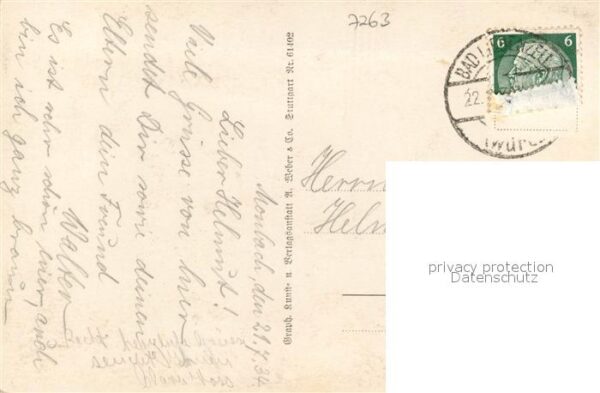 7263
6 6
BAD L
22.
(Württ
Monbach, den 21.7.34
Lieber Helmut!
Viele Grüsse von hier
sendet Dir sowie deinen
Eltern dein Freund
Walter
Es ist sehr schön hier, auch
bin ich ganz braun
Recht herzliche Grüsse
sendet
Graph. Kunst- u. Verlagsanstalt A. Weber & Co. Stuttgart Nr. 61402
Herrn
Helm
privacy protection
Datenschutz